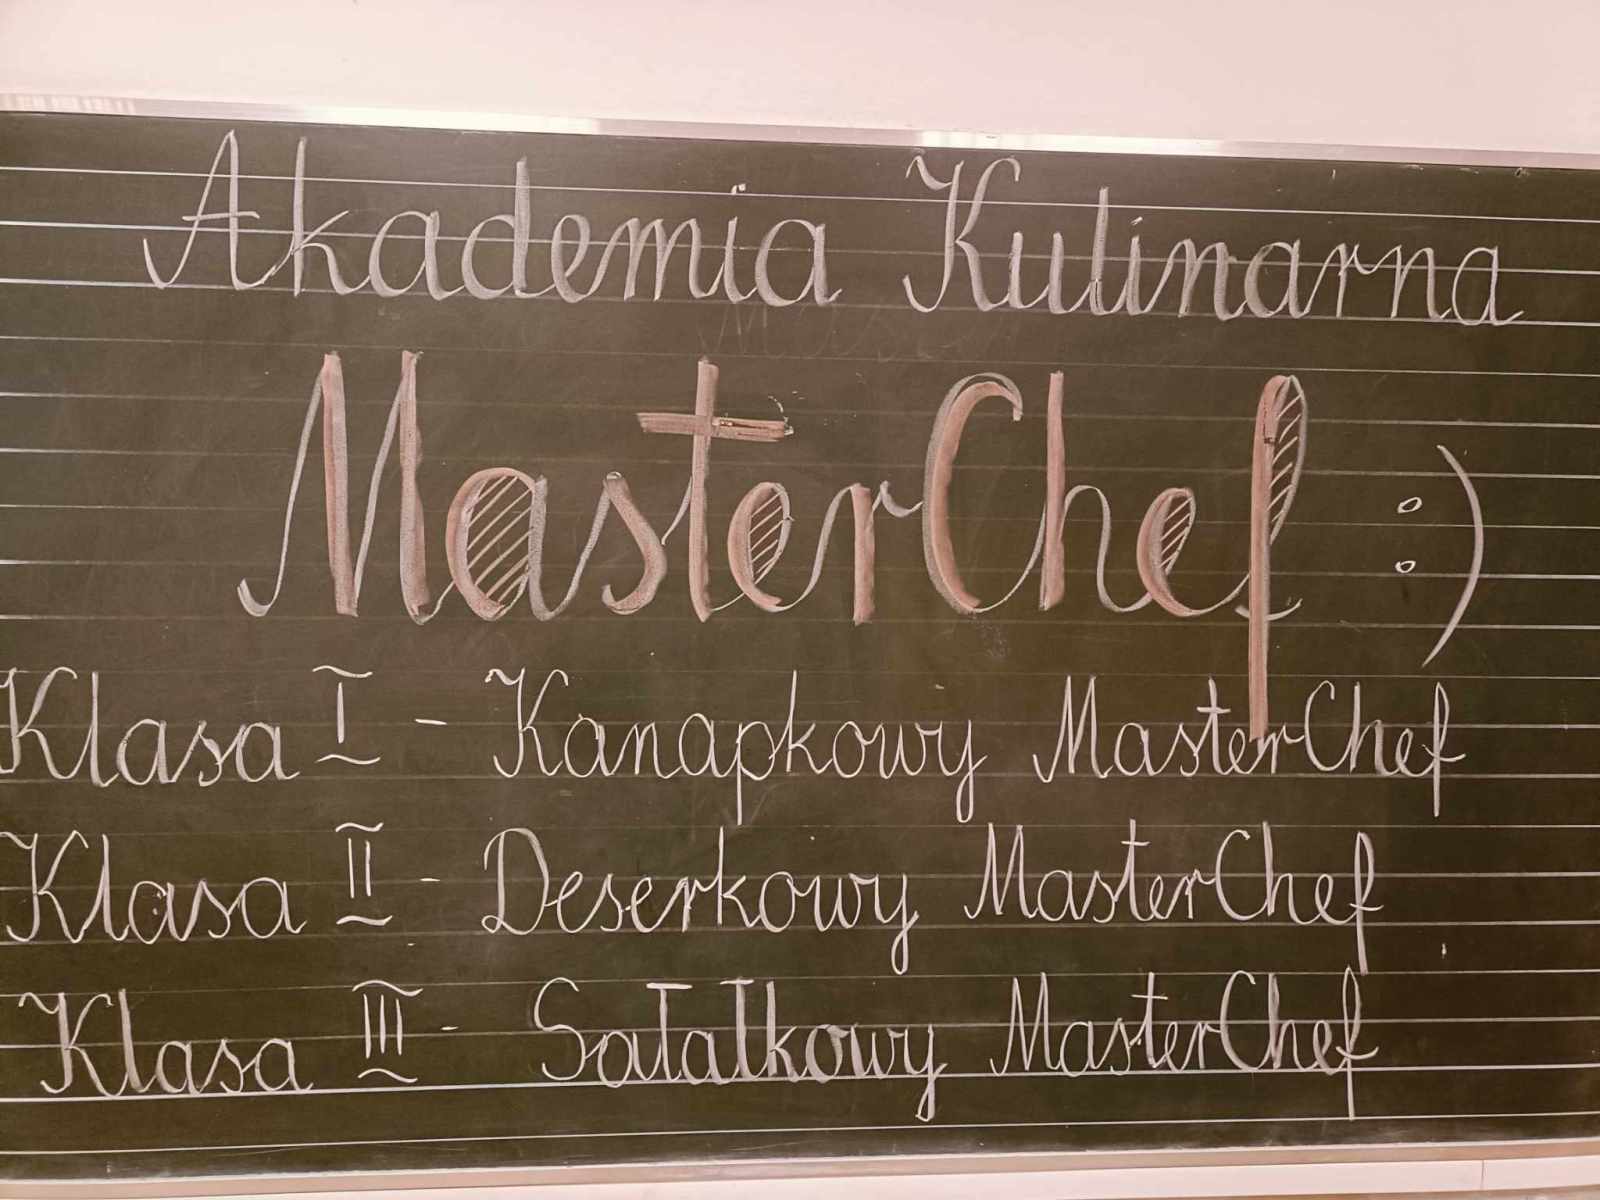 Akademia Kulinarna
MasterChef :)
Klasa I - Kanapkowy MasterChef
Klasa II - Deserkowy MasterChef
Klasa III - Sałatkowy MasterChef